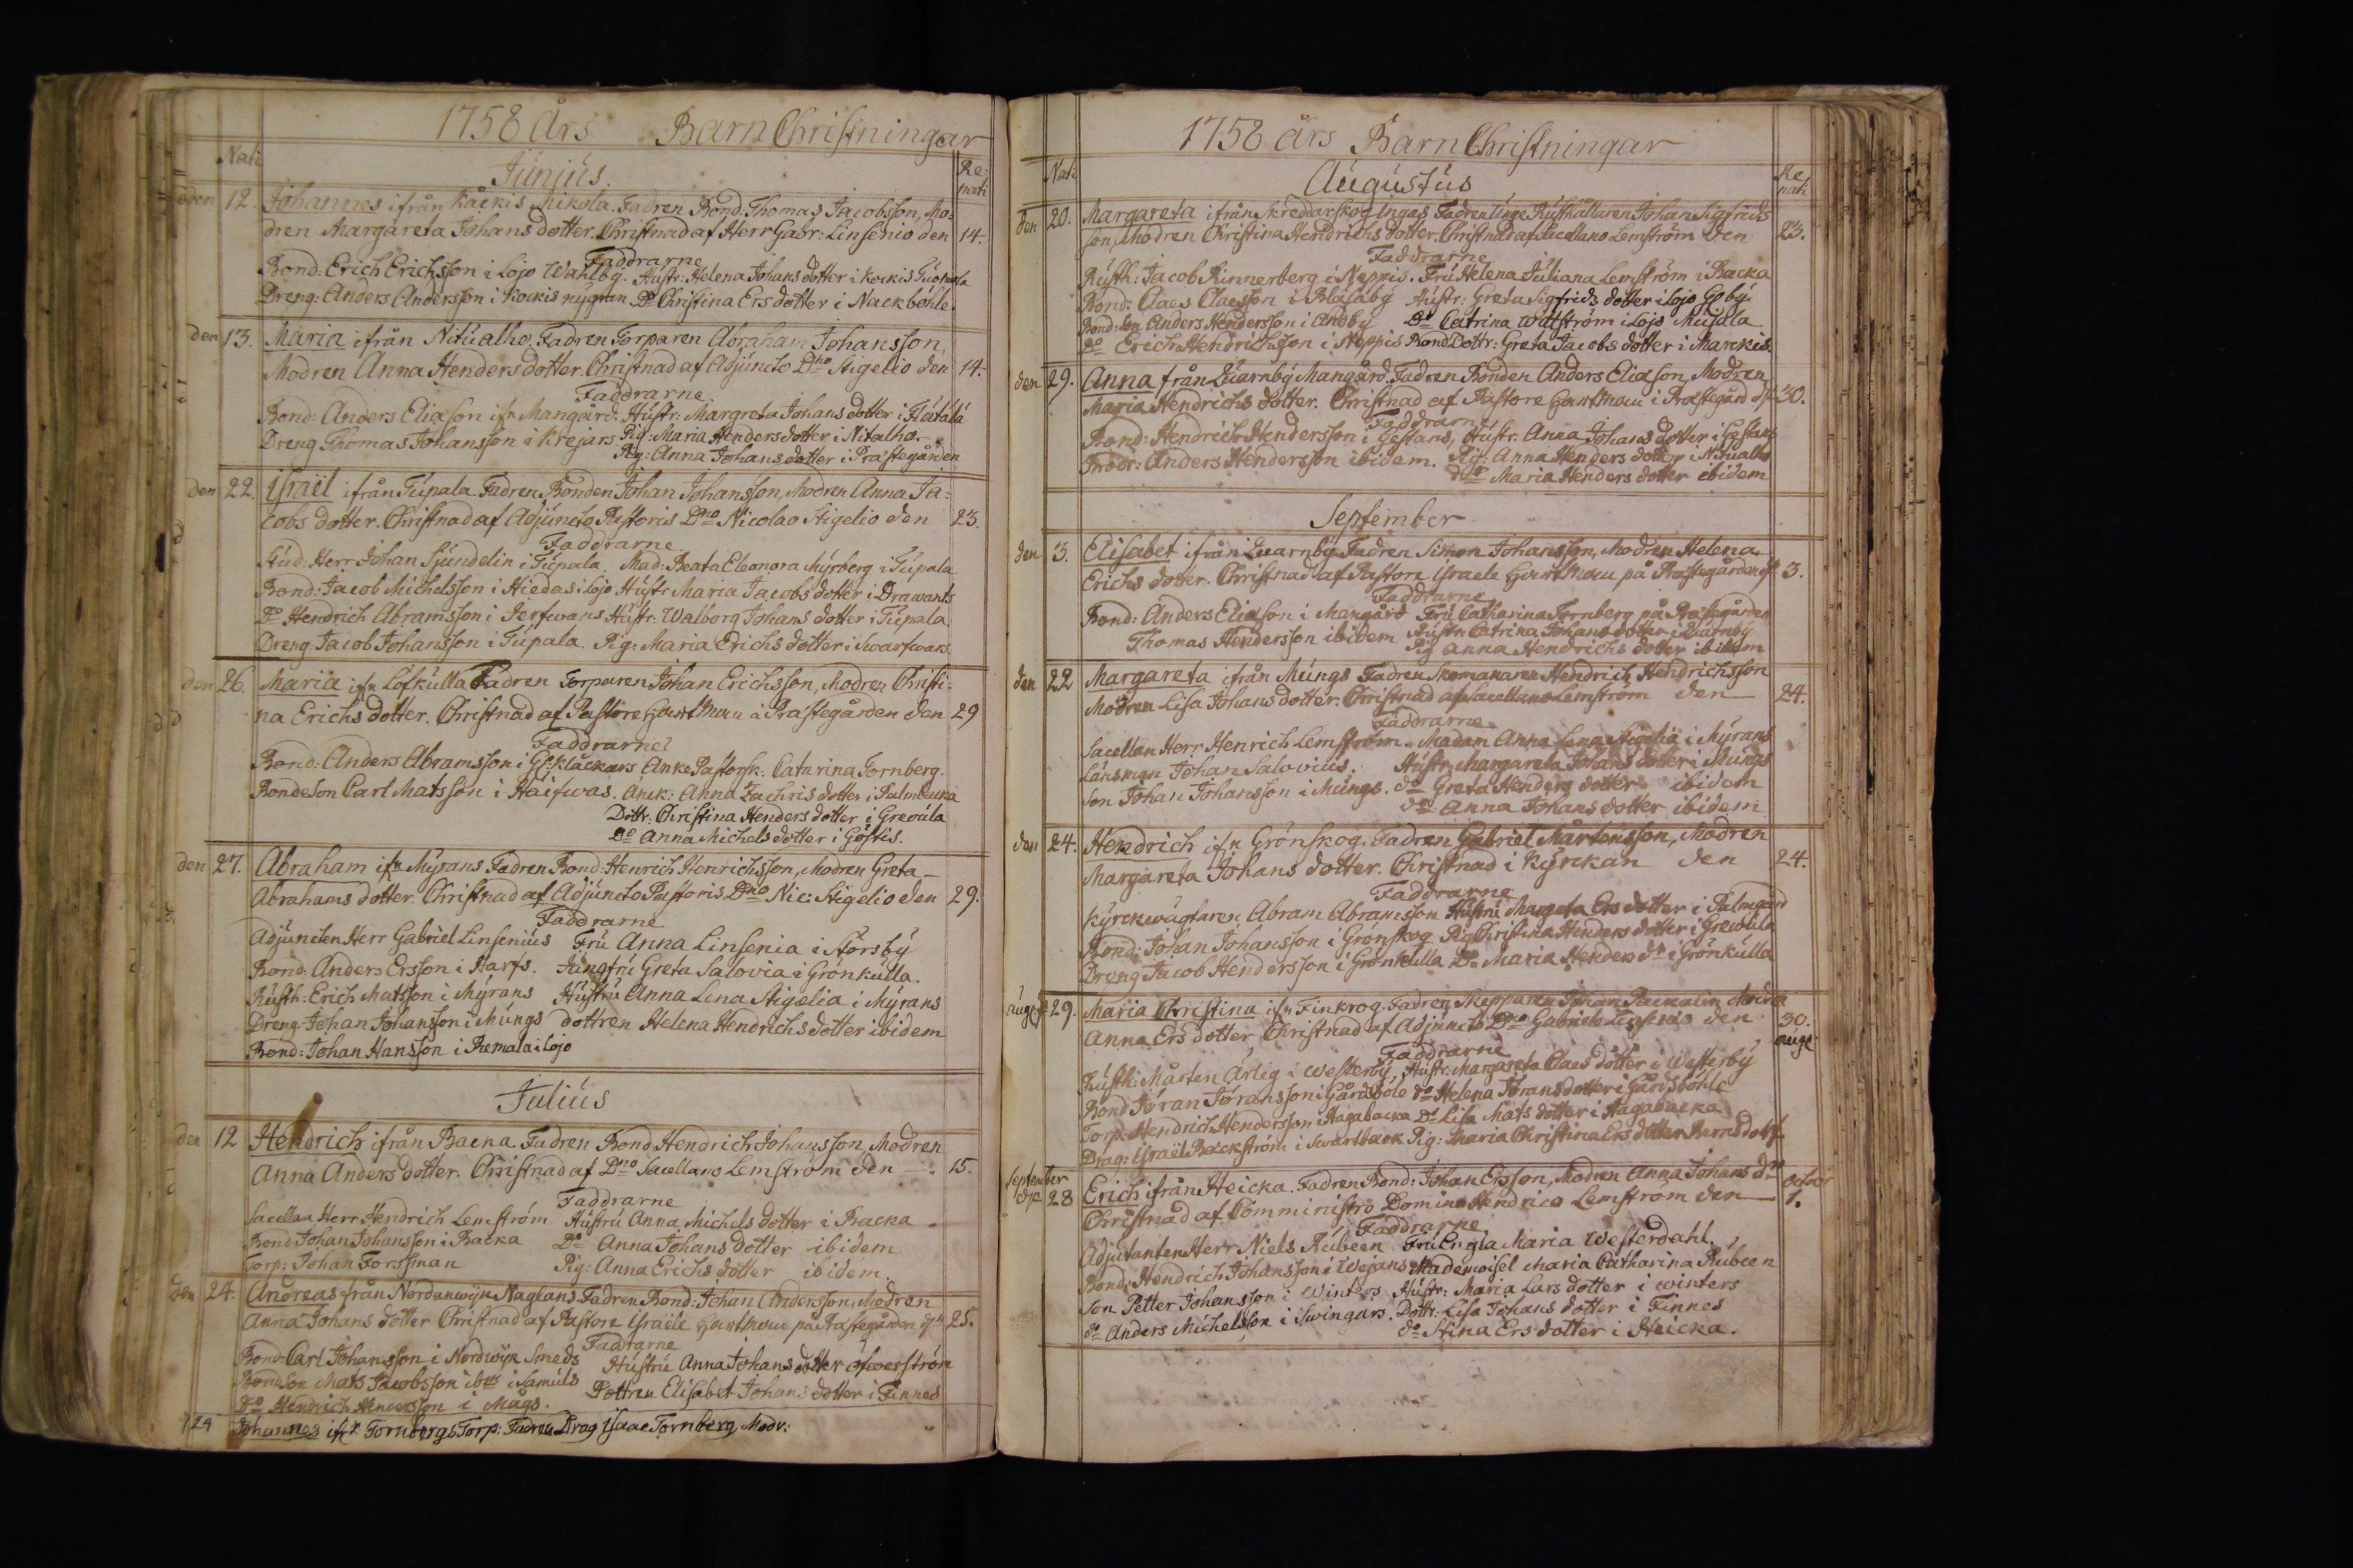 1758 Års Barn Christningar
Nati Junius. Re-
nati
den 12. Johannes ifrån Kåckis Mikola. Fadren Bond: Thomas Jacobsson, Mo-
dren Margareta Johans dotter. Christnad af Herr Gabr: Linsenio den 14.
Faddrarne
Bond: Erich Erichsson i Lojo Wahlby. Hustr: Helena Johans dotter i Kockis
Dreng: Anders Andersson i Kockis nygran Do Christina Ers dotter i Nackböhle.
den 13. Maria ifrån Nitualho. Fadren Torparen Abraham Johansson,
Modren Anna Henders dotter. Christnad af Adjuncto Dno Stigelio den 14.
Faddrarne
Bond: Anders Eliæson ifn Mangård. Hustr: Margreta Johans dotter i
Dreng Thomas Johansson i Krejars Pig: Maria Henders dotter i Nitalho.
Pig: Anna Johans dotter i Prastegården
den 22. Israël ifrån Tupala Fadren Bonden Johan Johansson, Modren Anna Ja-
cobs dotter. Christnad af Adjuncto Pastoris Dno Nicolao Stigelio den 23.
Faddrarne
Stud: Herr Johan Sjundelin i Tupala. Mad: Beata Eleonora Myrberg i Tupala
Bond: Jacob Michelsson i Hiedas i Lojo Hustr Maria Jacobs dotter i Drawants
Do Hendrich Abramsson i Jerfwans Hustr: Walborg Johans dotter i Tupala.
Dreng Jacob Johansson i Tupala. Pig: Maria Erichs dotter i Swartwars.
den 26. Maria ifn Löfkulla Fadren Torparen Johan Erichsson, Modren Christi-
na Erichs dotter. Christnad af Pastore Hartman i Prastegården den 29
Faddrarne
Bond: Anders Abramsson i Gl: Klackars Anke Pastorsk: Catarina Tornberg.
BondeSon Carl Matsson i Räifwas. Anck: Anna Zachris dotter i Palmbacka
Dottr: Christina Henders dotter i Grevula
Do Anna Michels dotter i Göstis.
den 27. Abraham ifn Myrans Fadren Bond: Henrich Henrichsson, Modren Greta
Abrahams dotter. Christnad af Adjuncto Pastoris Dno Nic: Stigelio den 29.
Faddrarne
Adjuncten Herr Gabriel Linsenius Fru Anna Linsenia i Storsby
Bond: Anders Ersson i Harfs. Jungfru Greta Salovia i Grönkulla.
Rusth: Erich Matsson i Myrans Hustru Anna Lena Stigelia i Myrans
Dreng: Johan Johansson i Mungs dottren Helena Hendrichs dotter ibidem
Bond: Johan Hansson i Remala i Lojo
Julius
den 12 Hendrich ifrån Backa. Fadren Bond Hendrich Johansson Modren
Anna Anders dotter. Christnad af Dno Sacellano Lemström den 15.
Faddrarne
Sacellan Herr Hendrich Lemström Hustru Anna Michels dotter i Backa
Bond Johan Johansson i Backa Do Anna Johans dotter ibidem
Torp: Johan Forssman Pig: Anna Erichs dotter ibidem.
den 24. Andreas från Nordanwijk Naglans. Fadren Bond: Johan Andersson, Modren
Anna Johans dotter Christnad af Pastore Israele Hartman på Prastegården 25.
Fadrarne
Bond: Carl Johansson i Nordwijk Smeds Hustru Anna Johans dotter Öfwerström
Bondson Mats Jacobsson i Samuls Dottren Elisabet Johans dotter i Finnes
Do Hendrich Hendersson i Mågs.
24 Johannes ifn Tornbergs Torp: Fadren Drag Isaac Tornberg Modr:
1758 års Barn Christningar
Nati Augustus Re
nati
den 20. Margareta ifrån Skreddarskog Ingas Fadren Rusthållaren Johan Sigfrids
son, Modren Christina Hendrichs dotter. Christnad af Sacellano Lemström den 23.
Faddrarne
Rusth: Jacob Rinnerberg i Neppis. Fru Helena Juliana Lemström i Backa
Bond: Claes Claesson i Blasaby Hustr: Greta Sigfrids dotter i Lojo Goby.
Bond: Son Anders Hendersson i Andby Do Catrina Watström i Lojo Muisala
Do Erich Hendrichsson i Neppis Bond Dottr: Greta Jacobs dotter i Marckis.
den 29. Anna från Quarnby Mangård. Fadren Bonden Anders Eliæson, Modren
Maria Hendrichs dotter. Christnad af Pastore Hartman i Prastegård 30.
Faddrarne
Bond: Hendrich Hendersson i Gestans, Hustr: Anna Johans dotter i Gestans
Brodr: Anders Hendersson ibidem. Pig: Anna Henders dotter i Nitualho
do Maria Henders dotter ibidem
September
den 3. Elisabet ifrån Quarnby Fadren Simon Johansson, Modren Helena
Erichs dotter. Christnad af Pastore Israele Hartman på Prastegården 3.
Faddrarne
Bond: Anders Eliæson i Mangård Fru Catharina Tornberg på Prastegården
Thomas Hendersson ibidem Hustr: Catrina Johans dotter i Quarnby
Pig Anna Hendrichs dotter ibidem
den 22 Margareta ifrån Mungs Fadren Skomakaren Hendrich Hendrichsson
Modren Lisa Johans dotter. Christnad af Sacellano Lemström den 24.
Faddrarne
Sacellan Herr Henrich Lemström. Madam Anna Lena Stigelia i Myrans
Länsman Johan Salovius. Hustr: Margareta Johans dotter i Mungs
Son Johan Johansson i Mungs. do Greta Henders dotter ibidem
do Anna Johans dotter ibidem
den 24. Hendrich ifn Grönskog. Fadren Gabriel Mårtensson, Modren
Margareta Johans dotter. Christnad i Kyrckan den 24.
Faddrarne
Kyrckwagtaren Abram Abramsson Hustru Margeta Ers dotter i Palmgård
Bond: Johan Johansson i Grönskog Pig Christina Henders dotter i Grewula
Dreng Jacob Hendersson i Grönkulla Do Maria Henders dr i Grönkulla
augt 29. Maria Christina ifn Finkrog. Fadren Skepparen Johan Packalin Modren
Anna Ers dotter Christnad af Adjuncto Dno Gabriele Linsenio den 30.
aug:
Faddrarne
Rusth: Mårten Ärlig i Westerby, Hustr: Margareta Claes dotter i Westerby
Bond Jöran Jöransson i Gårdsböle do Helena Jörans dotter i Gårdsböhle
Torp: Hendrich Hendersson i Hagabacka Do Lisa Mats dotter i Hagabacka
Drag: Israel Backström i Swartback Pig: Maria Christina Ers dotter
September
28 Erich ifrån Heicka. Fadren Bond: Johan Ersson, Modren Anna Johans dr October
Christnad af Comministro Domino Hendrico Lemström den 1.
Faddrarne
Adjutanten Herr Niels Rubeen Fru Engla Maria Westerdahl.
Bond: Hendrich Johansson i Wejans Mademoisel Maria Catharina Rubeen
Son Petter Johansson i Winters Hustr: Maria Lars dotter i winters
do Anders Michelsson i Swingars. Dottr: Lisa Johans dotter i Finnes
do Stina Ers dotter i Heicka.